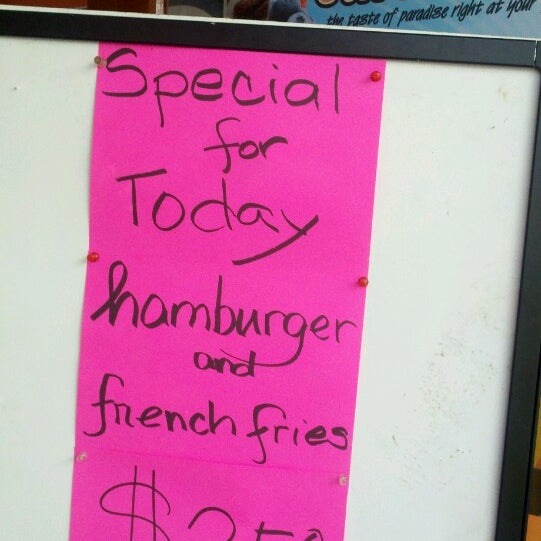 the taste of paradise right at your
Special
for
Today
hamburger
and
french fries